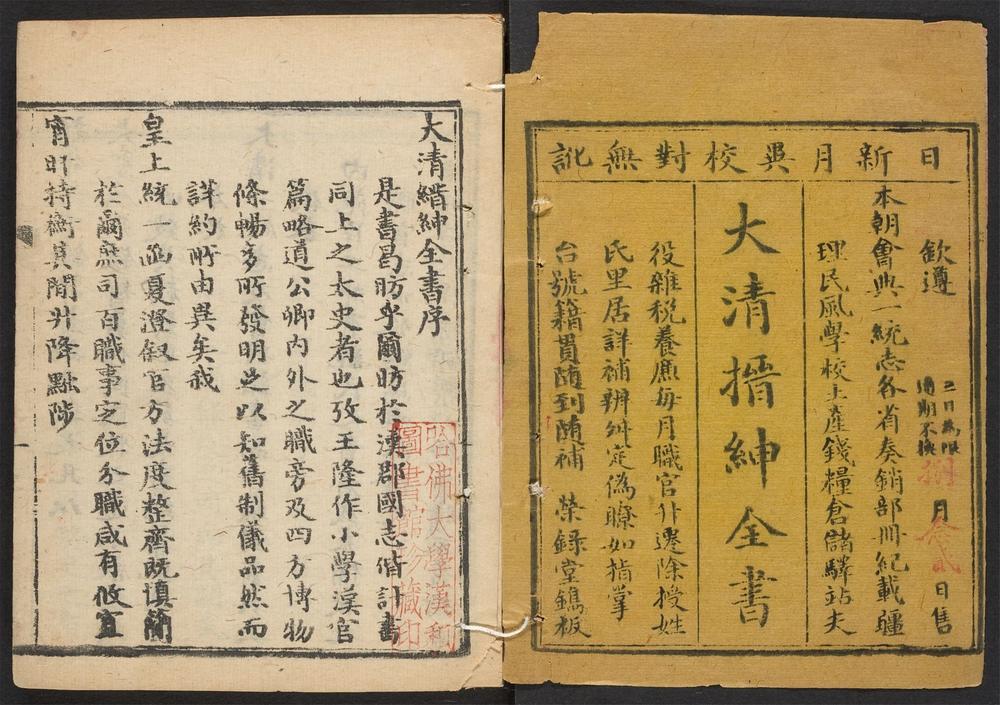 日新月異校對無訛
欽遵
三日為限
過期不換
捌月叁貳日售
本朝會典一統志各省奏銷部冊紀載疆
理民風學校土產錢糧倉儲驛站夫
大清搢紳全書
役雜稅養廉每月職官升遷除授姓
氏里居詳補辨舛定偽瞭如指掌
台號籍貫隨到隨補 榮錄堂鐫板
大清縉紳全書序
是書曷昉乎爾昉於漢郡國志偕計書
同上之太史者也攷王隆作小學漢官
篇略道公卿內外之職旁及四方博物
條暢多所發明足以知舊制儀品然而
詳約所由異矣我
皇上統一函夏澄叙官方法度整齊既慎簡
於爾庶司百職事定位分職咸有攸宜
宵旰持衡其間升降黜陟
哈佛大學漢和
圖書館珍藏印